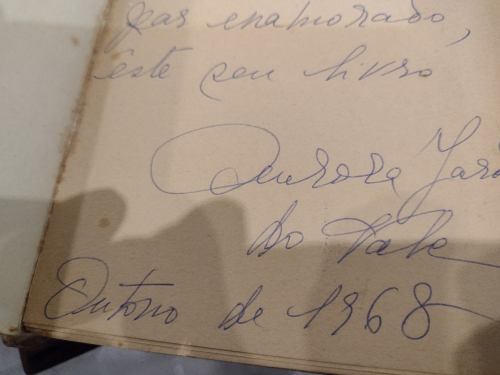 par enamorado,
êste seu livro
Aurora Jard
do Vale
Outono de 1968